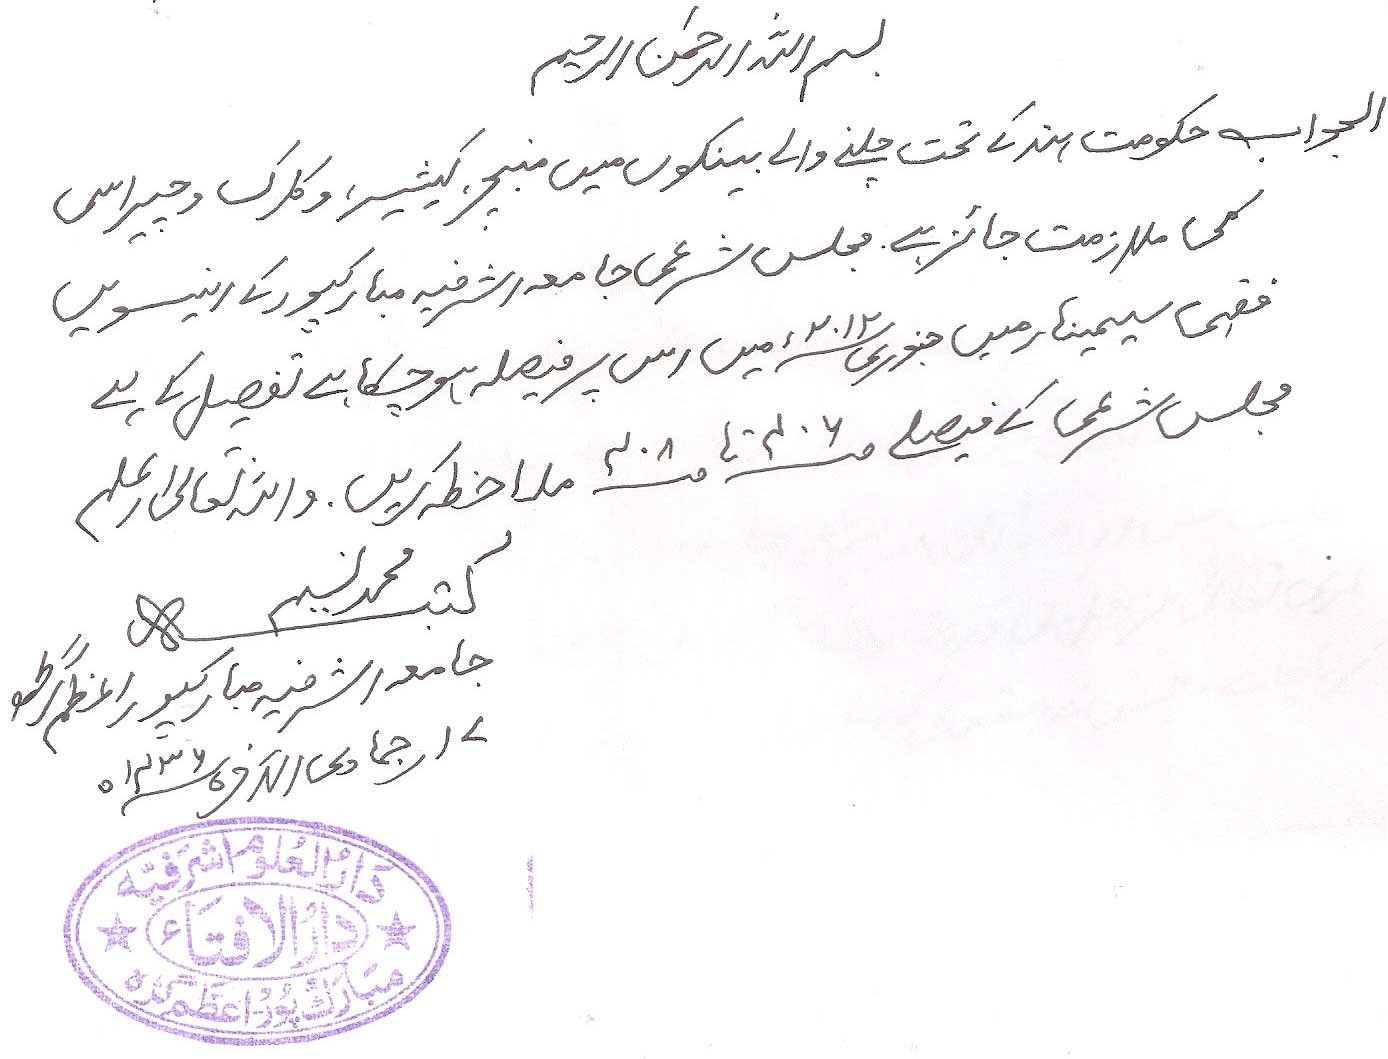 بسم اللہ الرحمٰن الرحیم
الجواب حکومت ہند کے تحت چلنے والے بینکوں میں منیجر، کیشیر، و کلرک و چپراسی
کی ملازمت جائز ہے۔ مجلس شرعی جامعہ اشرفیہ مبارکپور کے انیسویں
فقہی سیمینار میں جنوری ۲۰۱۲ء میں اس پر فیصلہ ہوچکا ہے تفصیل کے لیے
مجلس شرعی کے فیصلے ص۴۰۶ تا ص۴۰۸ ملاحظہ کریں۔ واللہ تعالیٰ اعلم
کتبہ محمد نسیم
جامعہ اشرفیہ مبارکپور اعظم گڑھ
۱۷ جمادی الآخرہ ۱۴۳۶ھ
دَارُ الْعُلُوم اشرَفیَّہ
دَارُ الافتَاء
مبَارک پُور۔ اعظم گڑہ